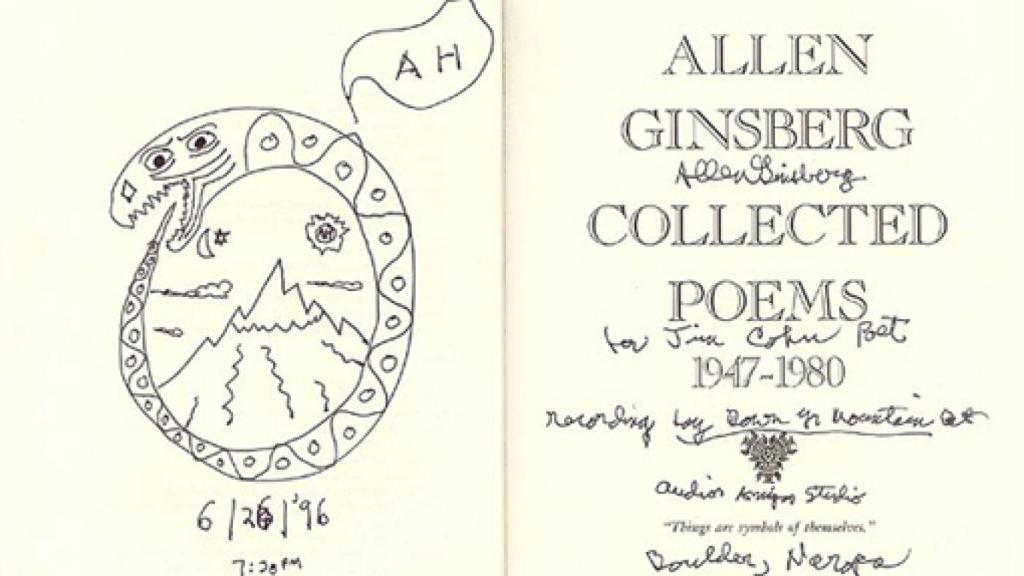 AH
6/26/'96
7:30 PM
ALLEN
GINSBERG
Allen Ginsberg
COLLECTED
POEMS
for Jim Cohn Poet
1947-1980
recording
Mountain
Studio
"Things are symbols of themselves."
Boulder, Naropa